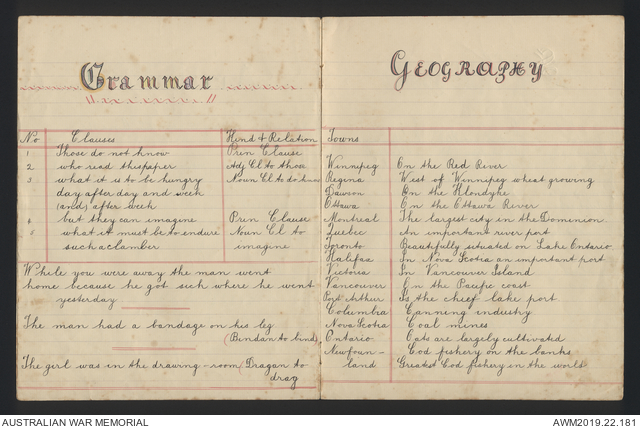 Grammar
No Clauses Kind & Relation
1 Those do not know Prin Clause
2 who read this paper Adj Cl to those
3 what it is to be hungry Noun Cl to do know
day after day and week
(and) after week
4 but they can imagine Prin Clause
5 what it must be to endure Noun Cl to
such a clamber imagine
While you were away the man went
home because he got sick where he went
yesterday
The man had a bandage on his leg
(Bindan to bind)
The girl was in the drawing-room (Dragan to
drag
GEOGRAPHY
Towns
Winnipeg On the Red River
Regina West of Winnipeg wheat growing
Dawson On the Klondyke
Ottawa On the Ottawa River
Montreal The largest city in the Dominion
Quebec An important river port
Toronto Beautifully situated on Lake Ontario
Halifax In Nova Scotia an important port
Victoria In Vancouver Island
Vancouver On the Pacific coast
Port Arthur Is the chief lake port
Columbia Canning industry
Nova Scotia Coal mines
Ontario Oats are largely cultivated
Newfoun- Cod fishery on the banks
land Greatest Cod fishery in the world
AUSTRALIAN WAR MEMORIAL AWM2019.22.181